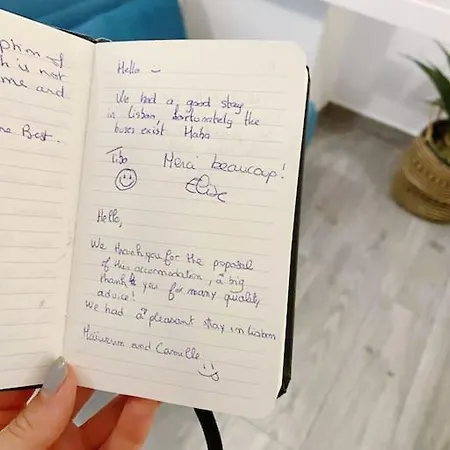 phn
h is not
me and
Best.
Hello ~
We had a good stay
in Lisbon, fortunately the
buses exist Haha
Tibo Merci beaucoup!
Elise
Hello,
We thank you for the proposal
of this accomodation, a big
thank you for many quality
advice!
We had a pleasant stay in Lisbon
and Camille